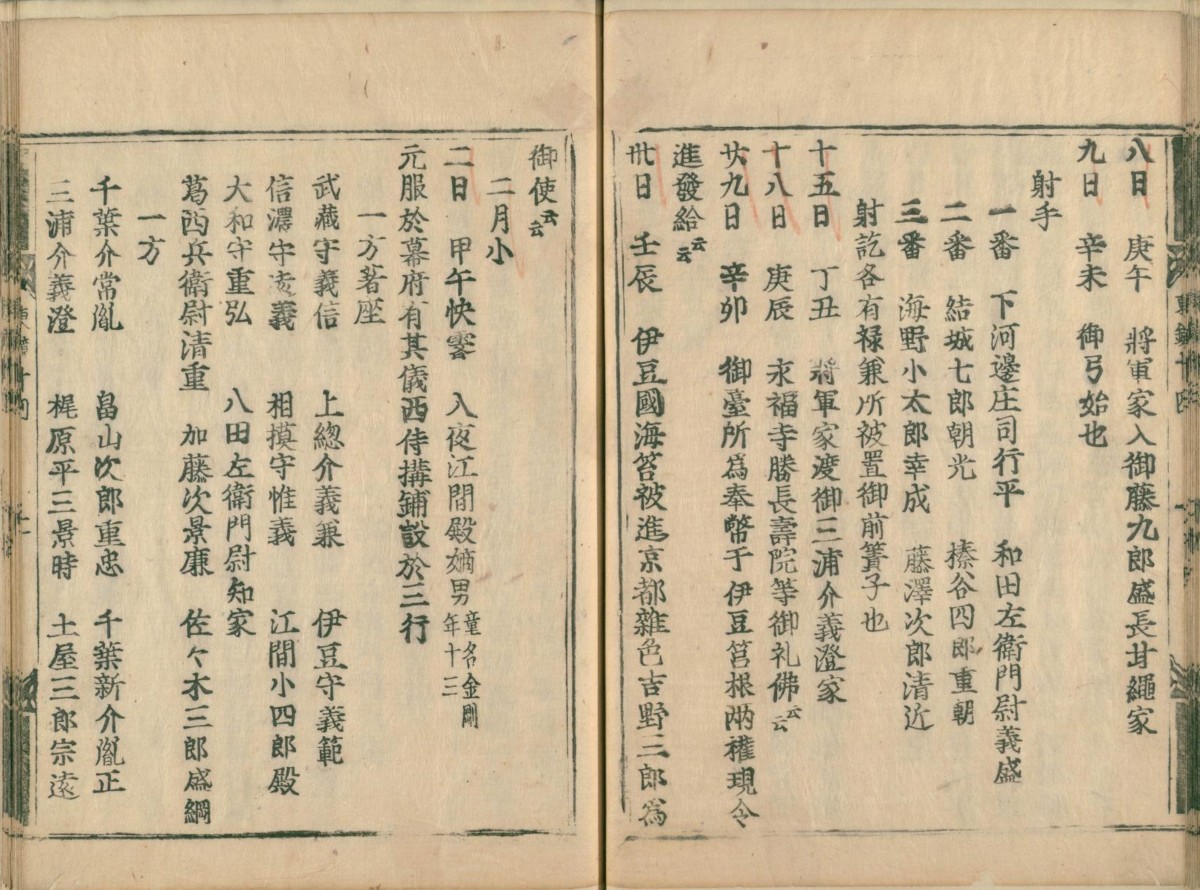 八日 庚午 將軍家入御藤九郎盛長甘繩家
九日 辛未 御弓始也
射手
一番 下河邊庄司行平 和田左衛門尉義盛
二番 結城七郎朝光 榛谷四郎重朝
三番 海野小太郎幸成 藤澤次郎清近
射訖各有禄兼所被置御前簀子也
十五日 丁丑 將軍家渡御三浦介義澄家
十八日 庚辰 永福寺勝長壽院等御礼佛云云
廿九日 辛卯 御臺所為奉幣于伊豆筥根兩權現令
進發給云云
卅日 壬辰 伊豆國海苔被進京都雜色吉野三郎為
御使云云
二月小
二日 甲午快霽 入夜江間殿嫡男童名金剛年十三
元服於幕府有其儀西侍搆鋪設於三行
一方著座
武藏守義信 上總介義兼 伊豆守義範
信濃守遠義 相摸守惟義 江間小四郎殿
大和守重弘 八田左衛門尉知家
葛西兵衛尉清重 加藤次景廉 佐々木三郎盛綱
一方
千葉介常胤 畠山次郎重忠 千葉新介胤正
三浦介義澄 梶原平三景時 土屋三郎宗遠